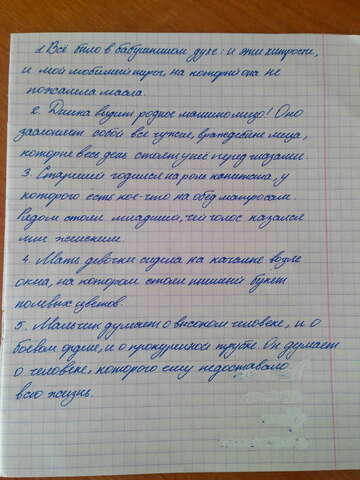 1. Всё было в бабушкином духе: и эти хитрости,
и мой любимый пирог, на который она не
пожалела масла.
2. Димка видит родное мамино лицо! Оно
заслоняет собой все чужие, враждебные лица,
которые весь день стоят у неё перед глазами.
3. Старший годился на роль капитана, у
которого есть кое-что на обед матросам.
Рядом стоял младший, чей голос казался
мне женским.
4. Мать девочки сидела на качалке возле
окна, на котором стоял пышный букет
полевых цветов.
5. Мальчик думает о высоком человеке, и о
боевом ордене, и о прокуренной трубке. Он думает
о человеке, которого ему недоставало
всю жизнь.